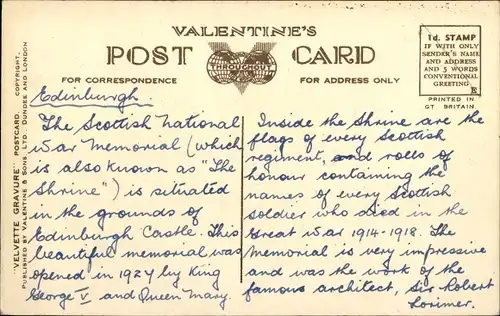 VALENTINE'S
POST CARD
THROUGHOUT
FOR CORRESPONDENCE
FOR ADDRESS ONLY
1d. STAMP
IF WITH ONLY
SENDER'S NAME
AND ADDRESS
AND 5 WORDS
CONVENTIONAL
GREETING.
PRINTED IN
GT BRITAIN
"VELVETTE GRAVURE" POSTCARD. COPYRIGHT.
PUBLISHED BY VALENTINE & SONS, LTD. DUNDEE AND LONDON
Edinburgh.
The Scottish National
War Memorial (which
is also known as "The
Shrine") is situated
in the grounds of
Edinburgh Castle. This
beautiful memorial was
opened in 1927 by King
George V and Queen Mary.
Inside the Shrine are the
flags of every Scottish
regiment, and rolls of
honour containing the
names of every Scottish
soldier who died in the
Great War 1914-1918. The
Memorial is very impressive
and was the work of the
famous architect, Sir Robert
Lorimer.